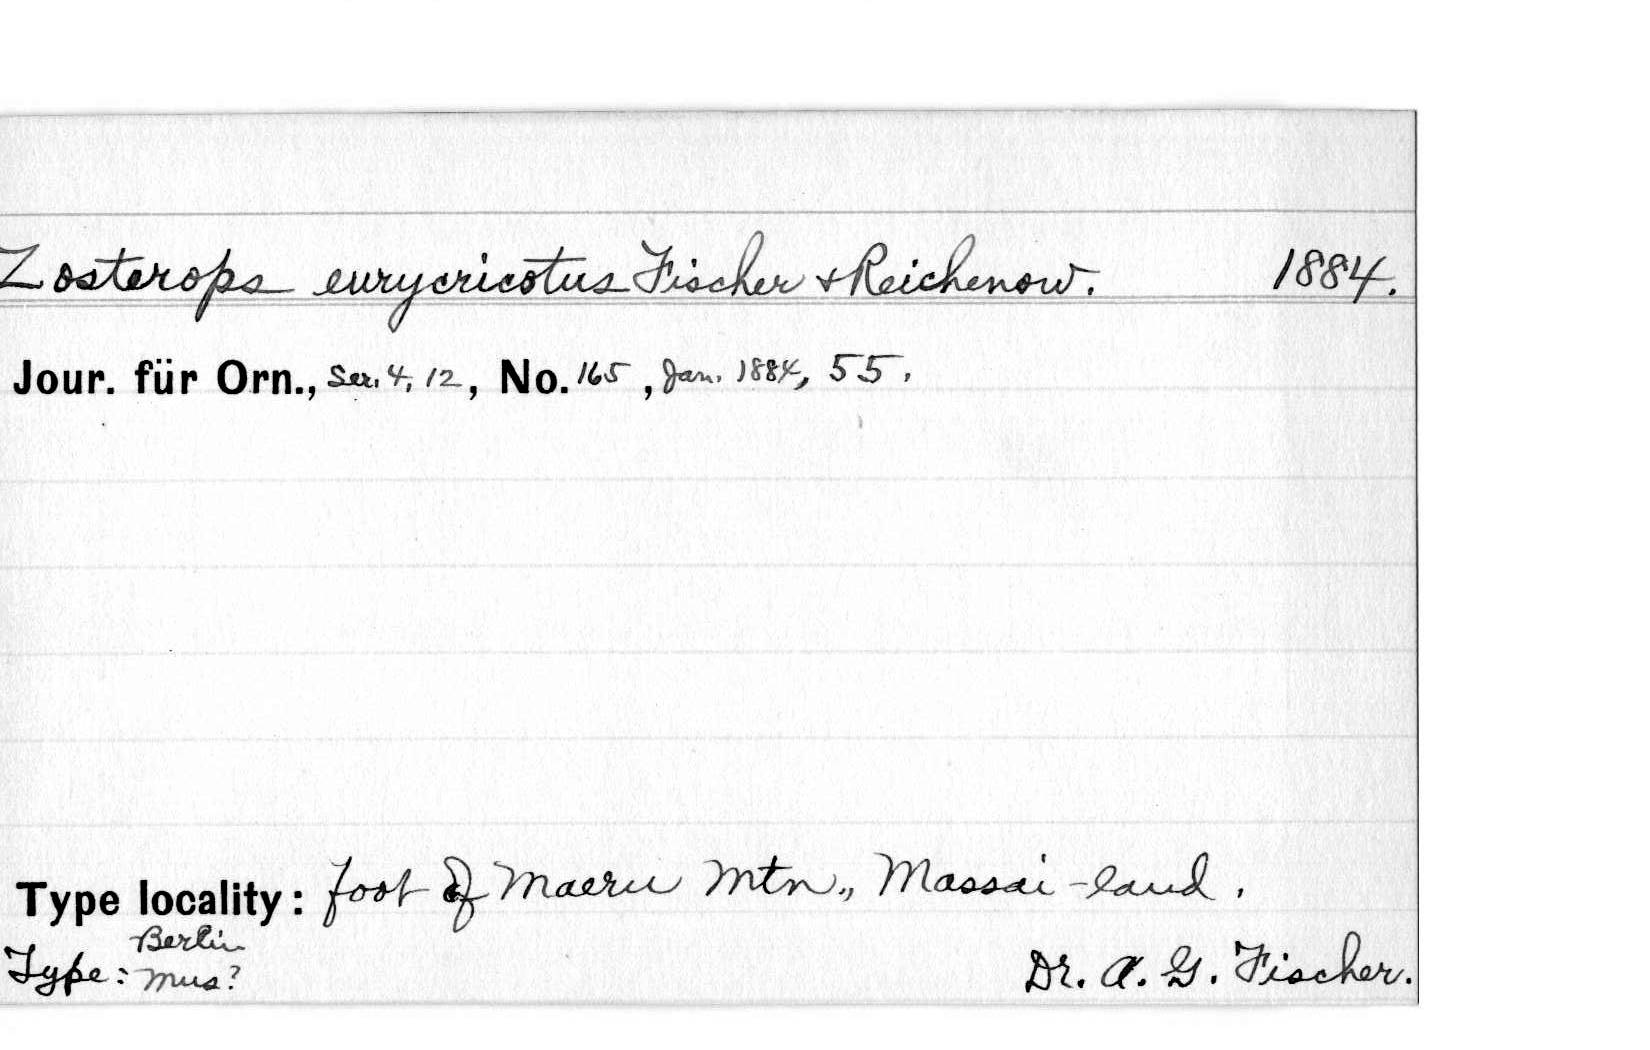 Zosterops eurycricotus Fischer & Reichenow. 1884.
Jour. für Orn., Ser. 4, 12, No. 165, Jan. 1884, 55.
Type locality: foot of Maeru Mtn., Massai-land.
Type: Berlin Mus?
Dr. A. G. Fischer.